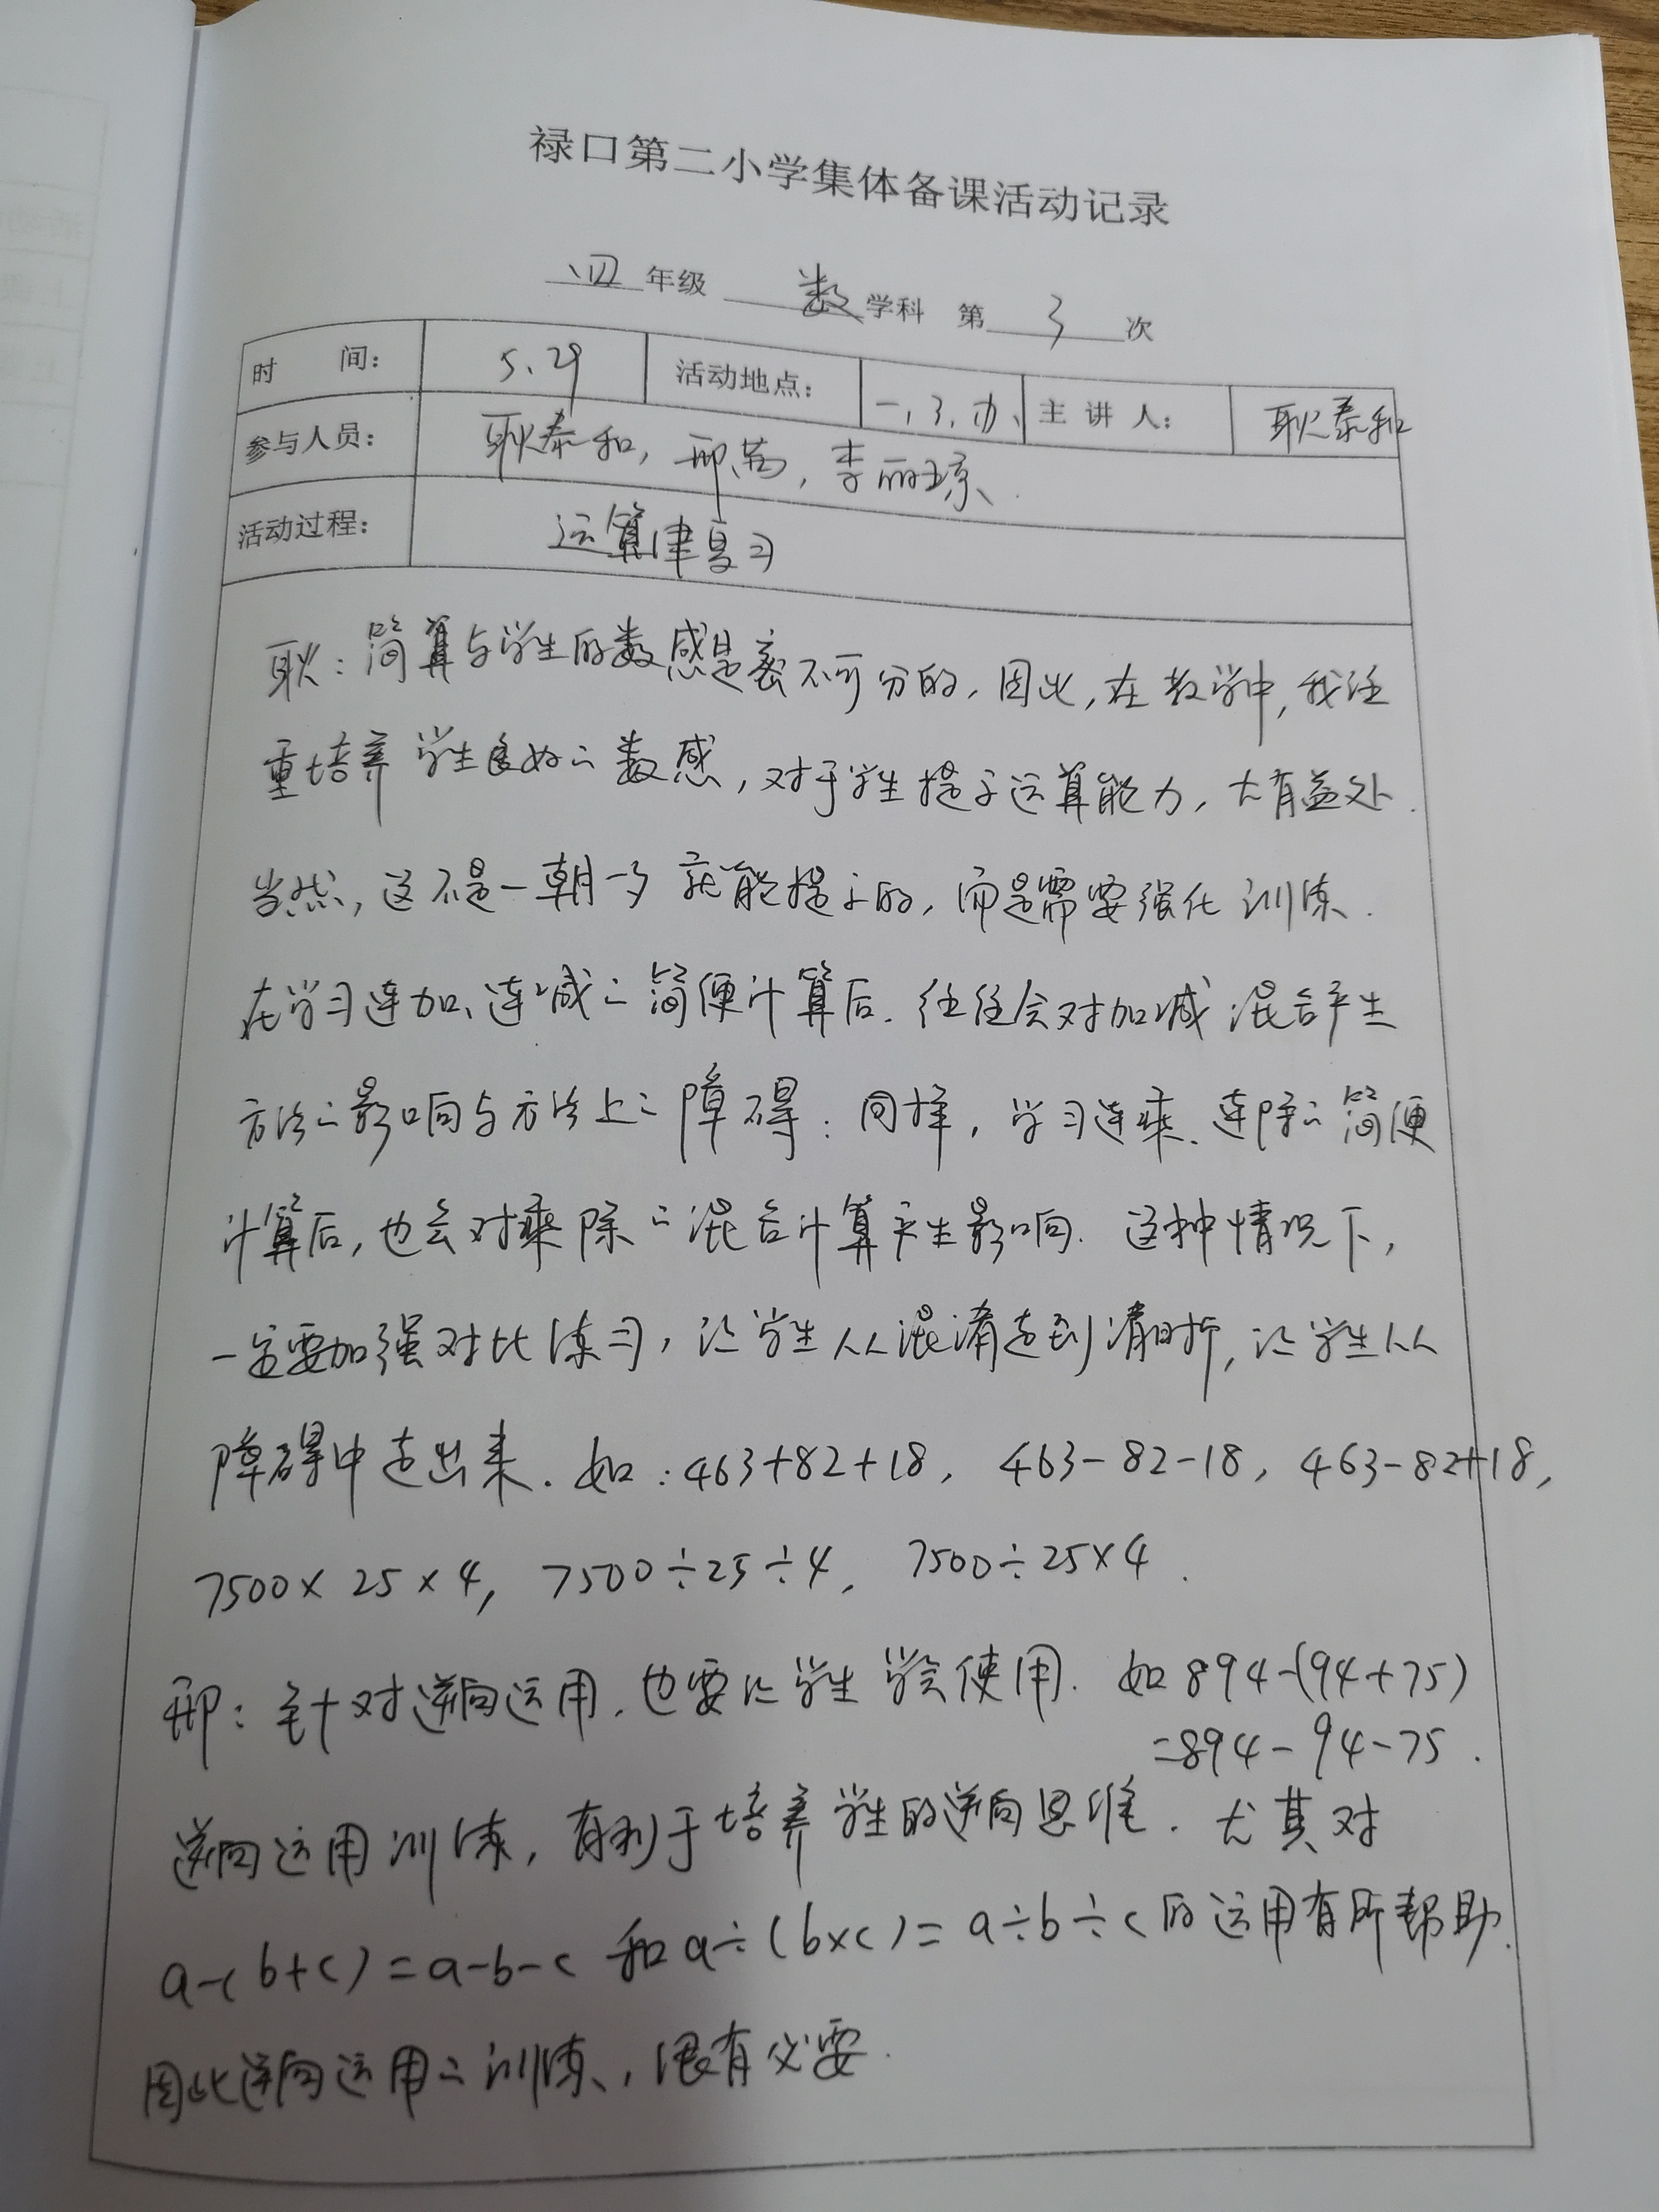 禄口第二小学集体备课活动记录
四年级 数学科 第3次
时 间: 5.29 活动地点: 一、3、办、 主 讲 人: 耿泰和
参与人员: 耿泰和, 邢芮, 李丽琼、
活动过程: 运算律复习
耿:简算与学生的数感是密不可分的,因此,在教学中,我注
重培养学生良好的数感,对于学生提高运算能力,大有益处.
当然,这不是一朝一夕就能提高的,而是需要强化训练.
在学习连加、连减的简便计算后.往往会对加减混合产生
方法的影响与方法上的障碍:同样,学习连乘、连除的简便
计算后,也会对乘除的混合计算产生影响.这种情况下,
一定要加强对比练习,让学生从混淆走到清晰,让学生从
障碍中走出来.如:463+82+18, 463-82-18, 463-82+18,
7500×25×4, 7500÷25÷4, 7500÷25×4.
邢:针对逆向运用.也要让学生学会使用.如894-(94+75)
=894-94-75.
逆向运用训练,有利于培养学生的逆向思维.尤其对
a-(b+c)=a-b-c 和a÷(b×c)=a÷b÷c的运用有所帮助.
因此逆向运用的训练,很有必要.